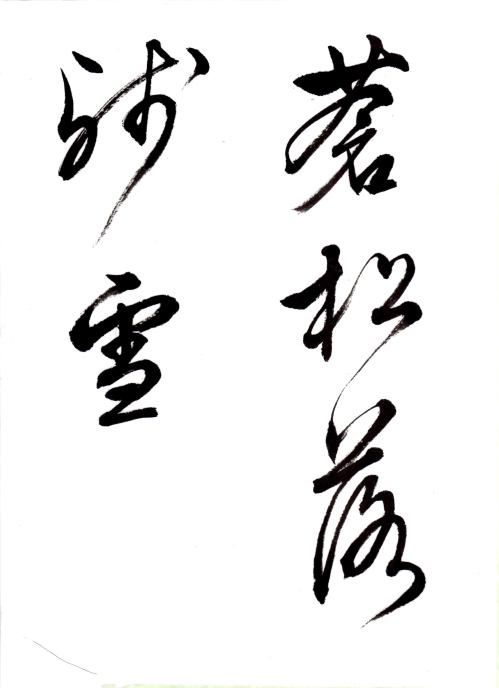 蒼松落
残雪